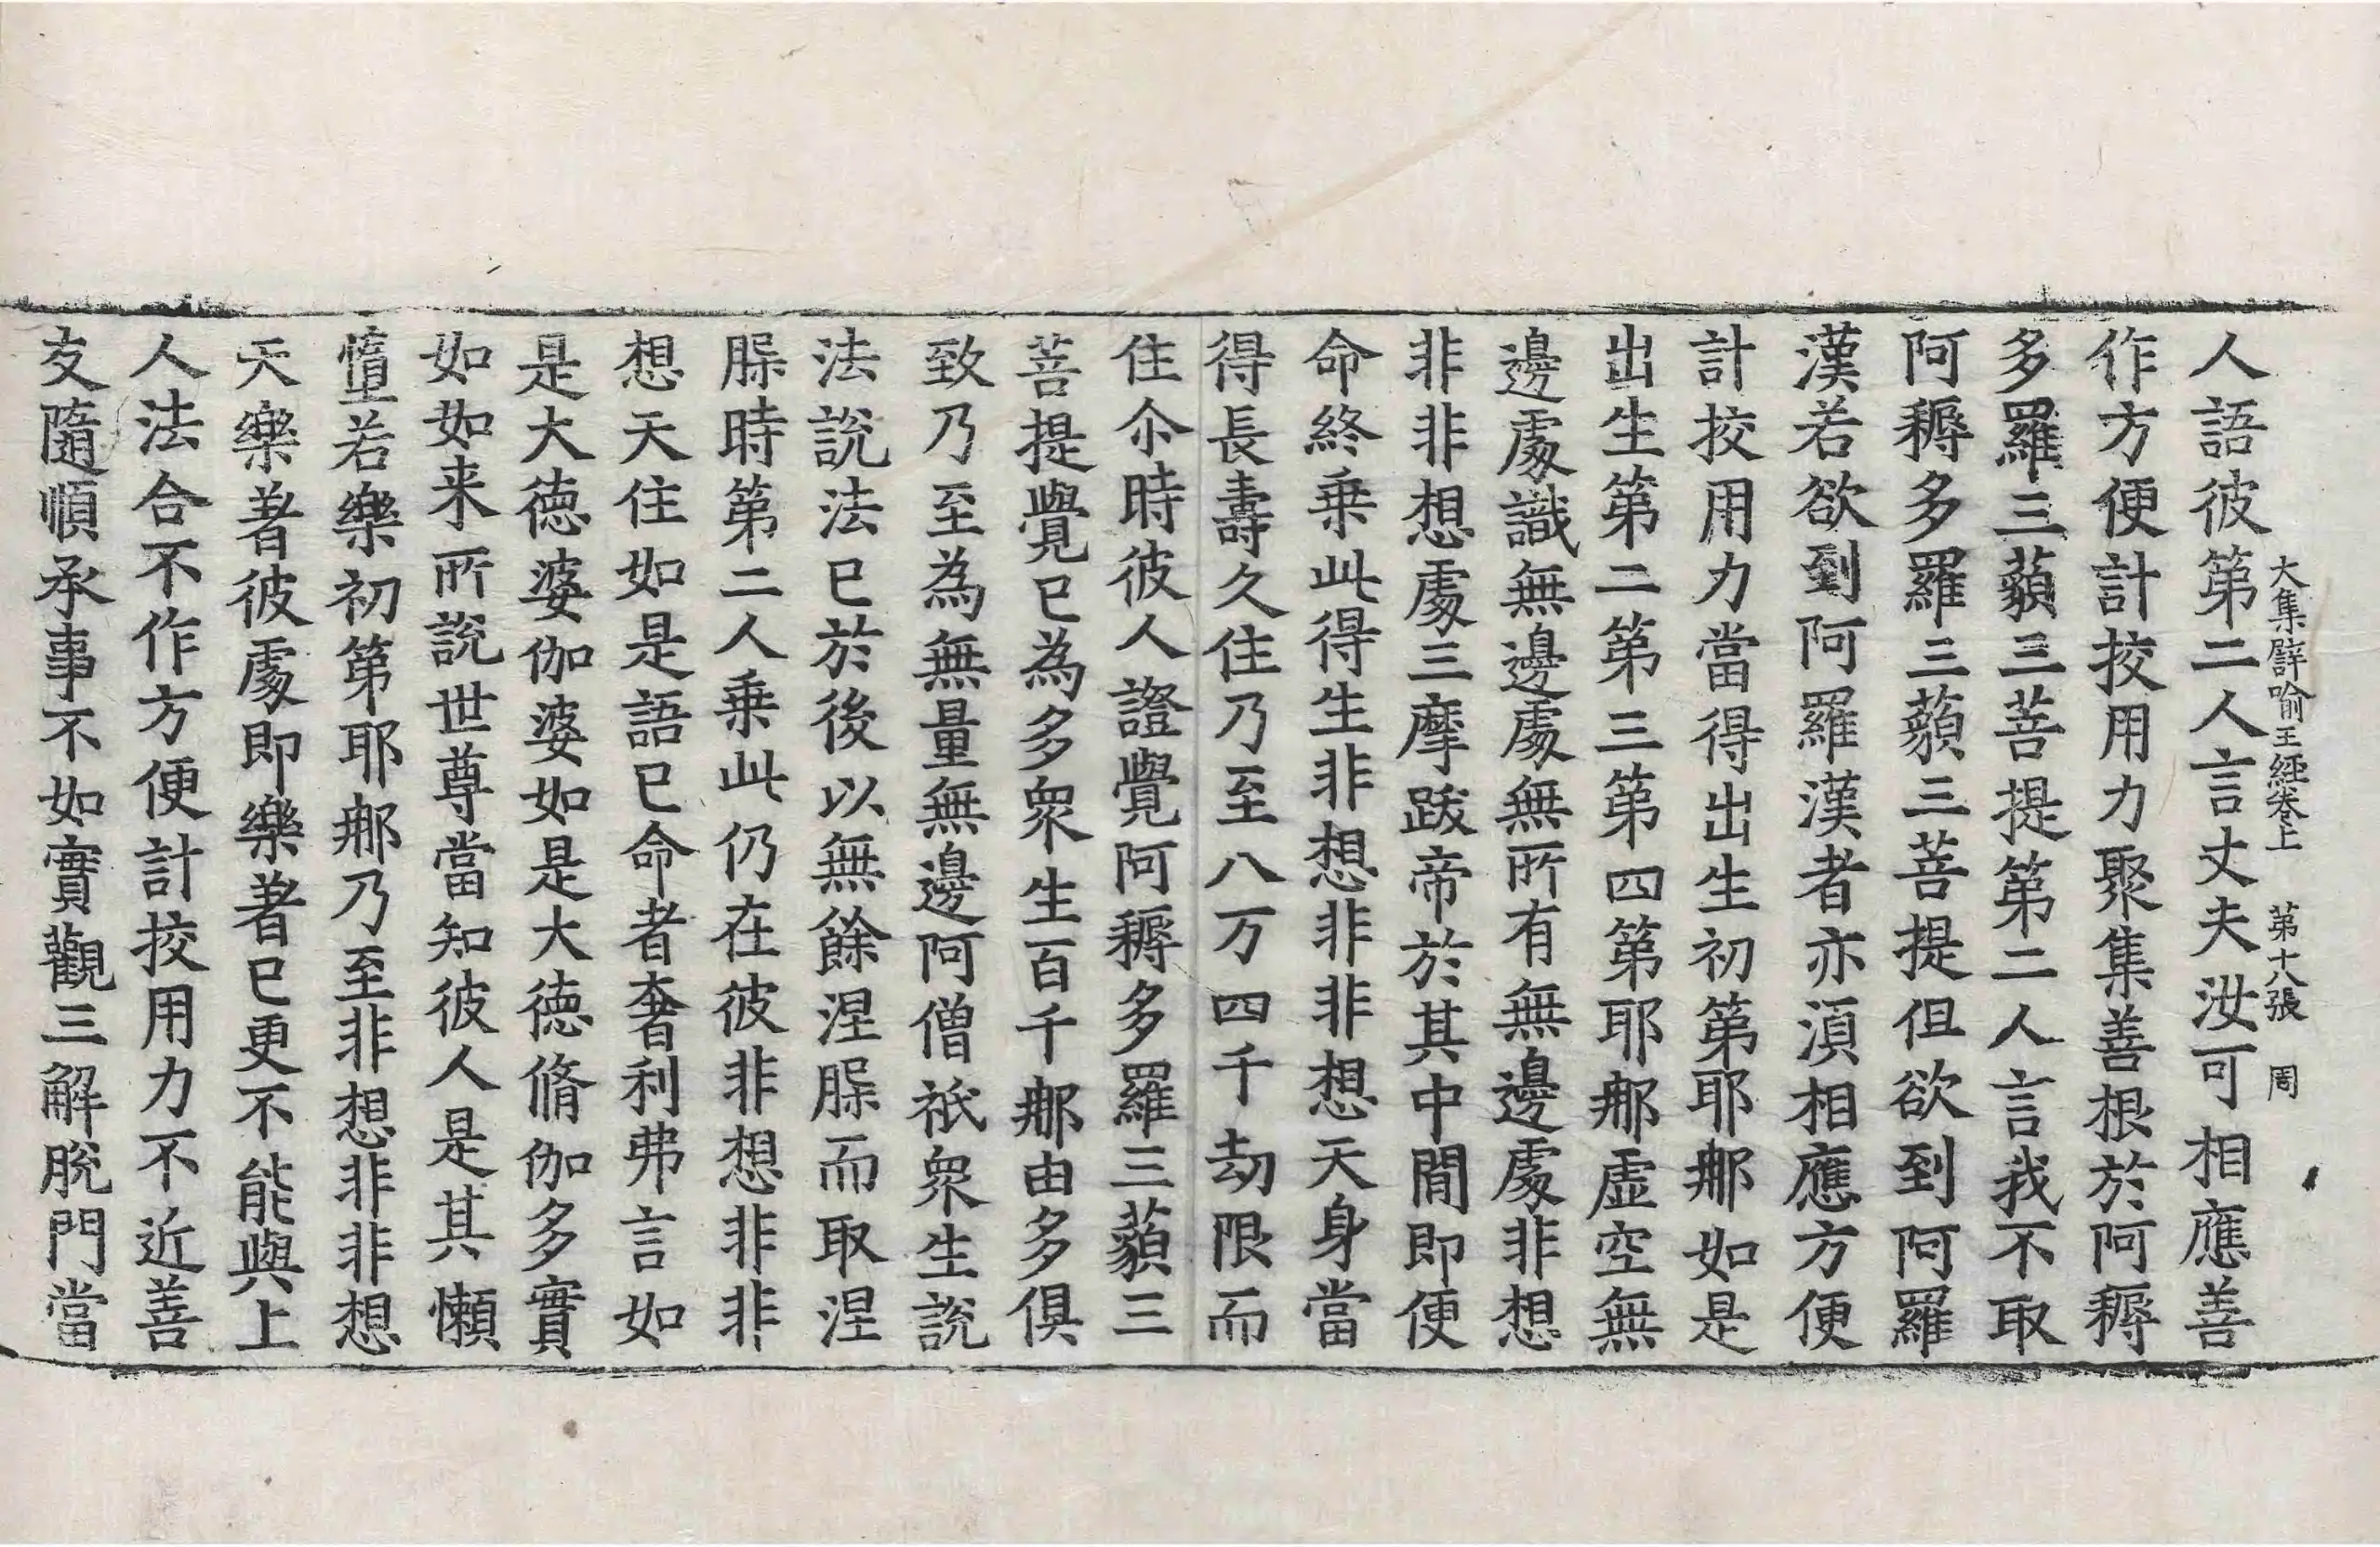 大集譬喻王經卷上　第十八張　周
人語彼第二人言丈夫汝可相應善
作方便計挍用力聚集善根於阿耨
多羅三藐三菩提第二人言我不取
阿耨多羅三藐三菩提但欲到阿羅
漢若欲到阿羅漢者亦湏相應方便
計挍用力當得出生初第耶那如是
出生第二第三第四第耶那虛空無
邊處識無邊處無所有無邊處非想
非非想處三摩跋帝於其中間即便
命終乗此得生非想非非想天身當
得長壽久住乃至八万四千劫限而
住尒時彼人證覺阿耨多羅三藐三
菩提覺已為多衆生百千那由多俱
致乃至為無量無邊阿僧祇衆生說
法說法已於後以無餘涅槃而取涅
槃時第二人乗此仍在彼非想非非
想天住如是語已命者奢利弗言如
是大德婆伽婆如是大德脩伽多實
如如来所說世尊當知彼人是其懶
墮若樂初第耶那乃至非想非非想
天樂著彼處即樂著已更不能與上
人法合不作方便計挍用力不近善
友隨順承事不如實觀三解脫門當